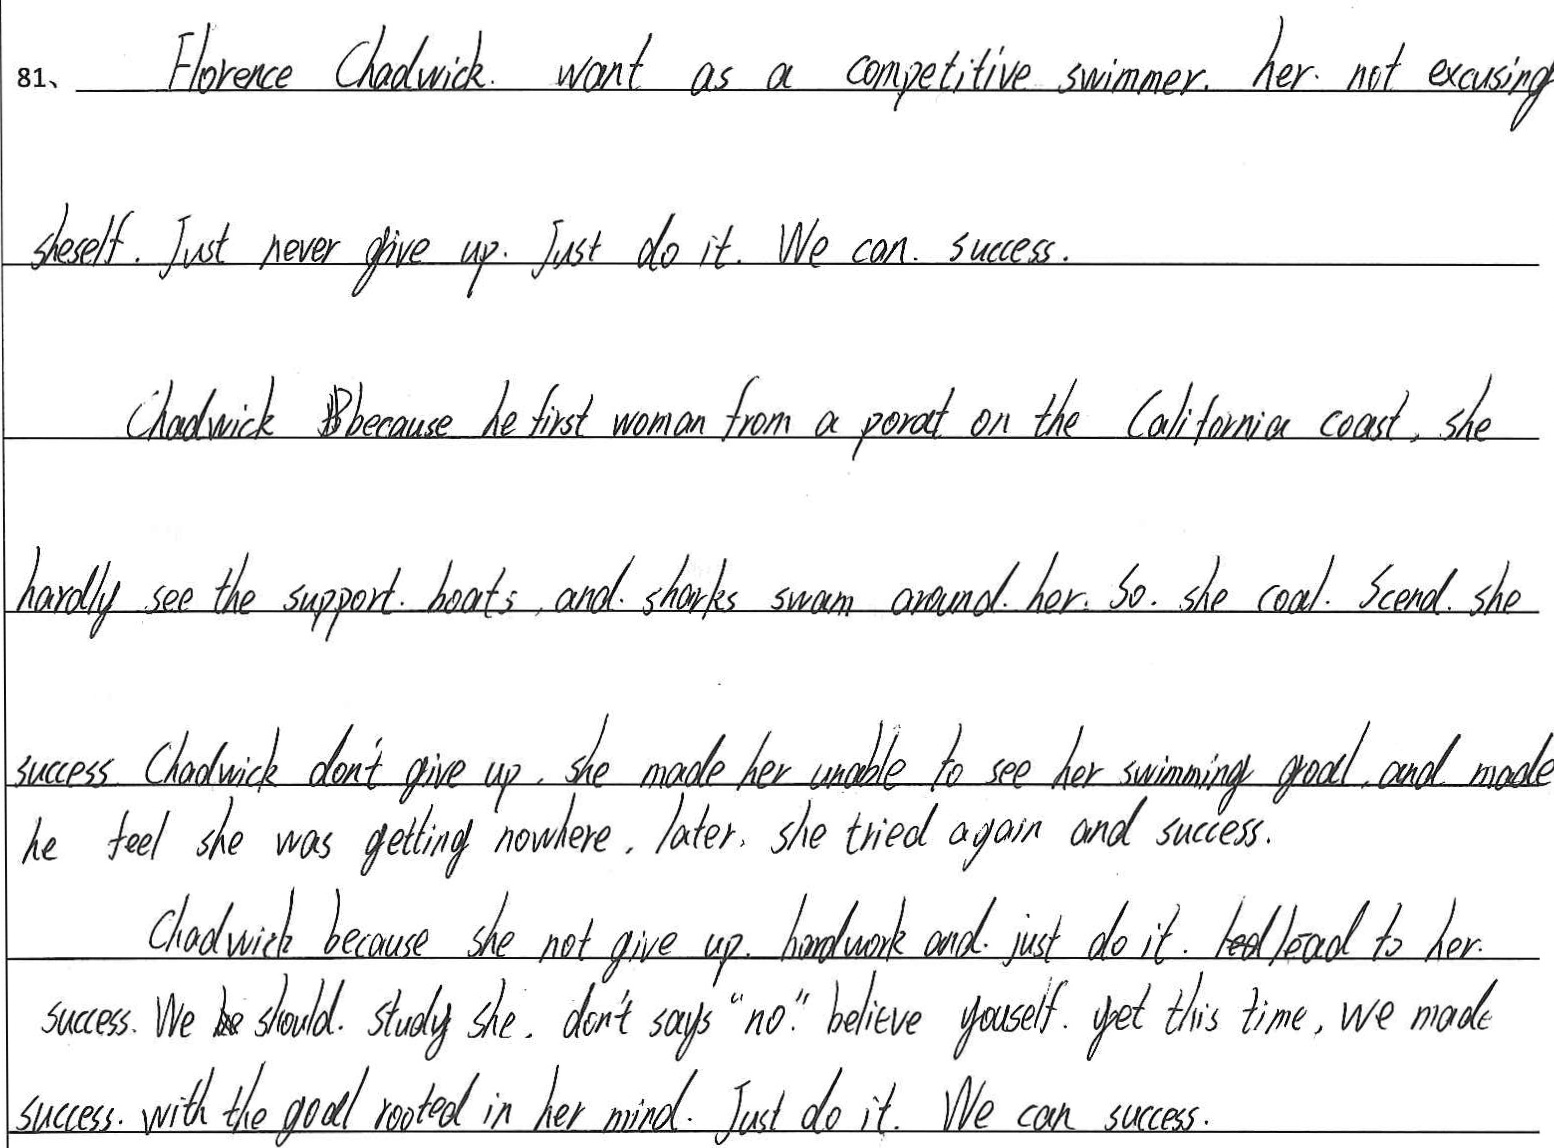 81、 Florence Chadwick. want as a competitive swimmer. her. not excusing
sheself. Just never give up. Just do it. We can. success.
Chadwick because he first woman from a porat on the California coast, she
hardly see the support. boats, and. sharks swam around. her. So. she coal. Scend. she
success. Chadwick don't give up. she made her unable to see her swimming goal, and made
he feel she was getting nowhere. later. she tried again and success.
Chadwick because she not give up. hardwork and. just do it. lead to her.
success. We should. study she. don't says "no". believe youself. yet this time, we made
success. with the goal rooted in her mind. Just do it. We can success.